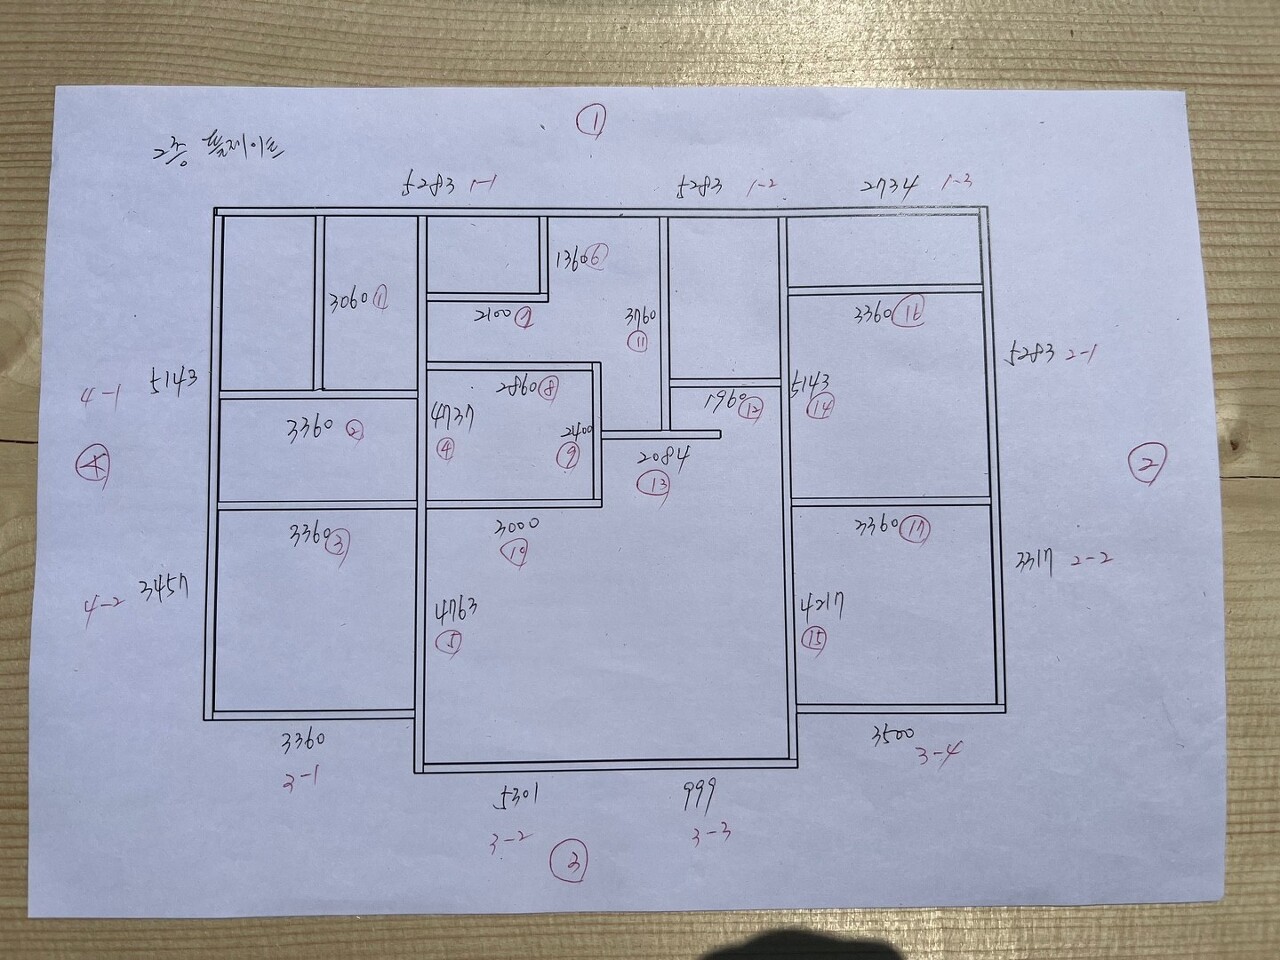 ①
2층 플레이트
5283 1-1
5283 1-2
2734 1-3
1360 ⑥
3060 ①
2100 ⑦
3760
⑪
3360 ⑯
5283 2-1
4-1 5143
2860 ⑧
5143
⑭
1960 ⑫
4737
④
3360 ②
2400
⑨
2084
⑬
④
②
3360 ③
3000
⑩
3360 ⑰
3317 2-2
4-2 3457
4763
⑤
4217
⑮
3360
3-1
3500
3-4
5301
3-2
999
3-3
③